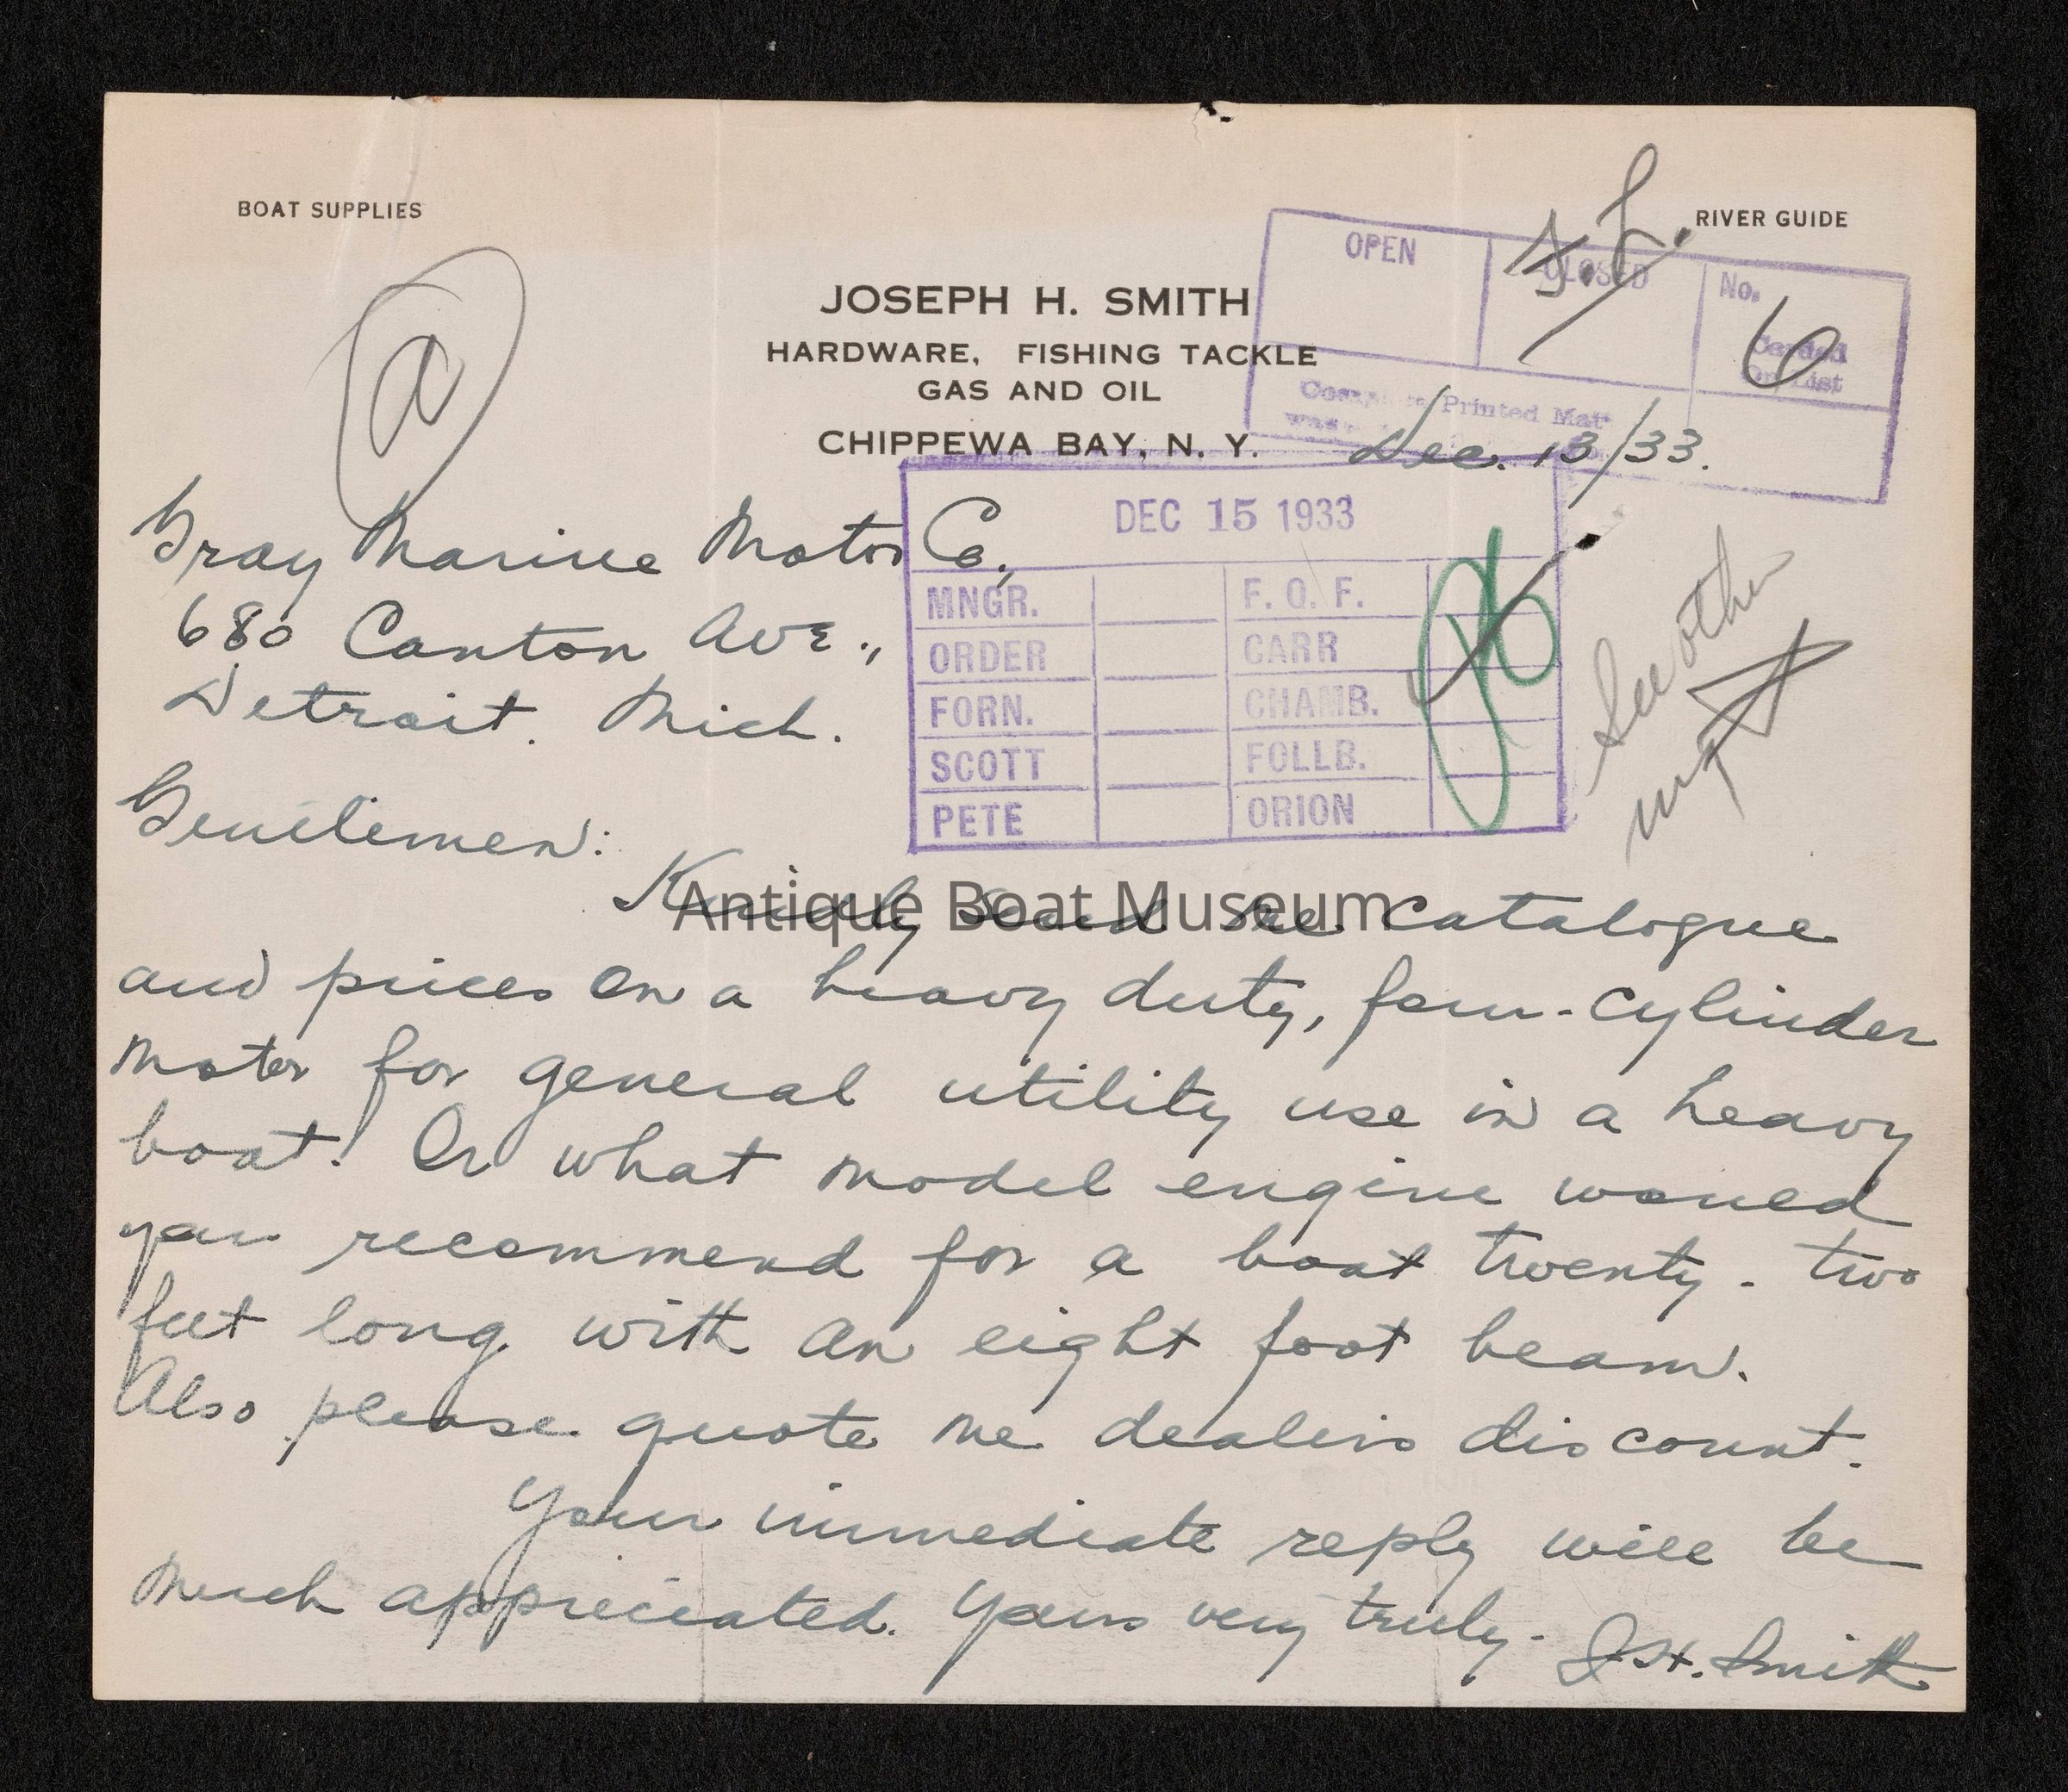 BOAT SUPPLIES
RIVER GUIDE
JOSEPH H. SMITH
HARDWARE, FISHING TACKLE
GAS AND OIL
CHIPPEWA BAY, N. Y.
OPEN CLOSED No. 6
On List
Printed
Dec. 13/33.
a
DEC 15 1933
MNGR. F. O. F.
ORDER CARR
FORN. CHAMB.
SCOTT FOLLB.
PETE ORION
See other
Gray Marine Motor Co.,
680 Canton Ave.,
Detroit. Mich.
Gentlemen:
Kindly send me catalogue
and prices on a heavy duty, four-cylinder
motor for general utility use in a heavy
boat. Or what model engine would
you recommend for a boat twenty-two
feet long with an eight foot beam.
Also please quote me dealers discount.
Your immediate reply will be
much appreciated. Yours very truly.
J.H. Smith
Antique Boat Museum